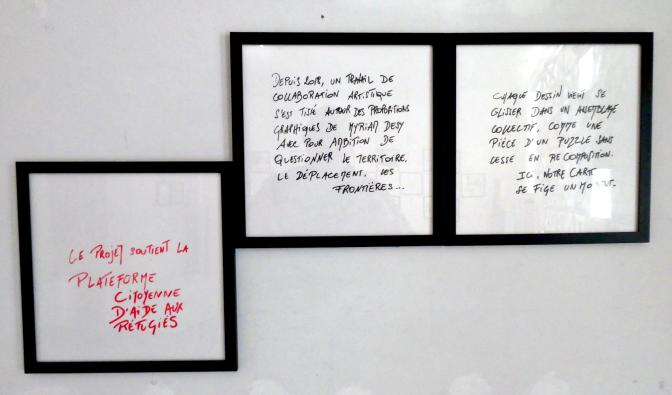 DEPUIS 2018, UN TRAVAIL DE
COLLABORATION ARTISTIQUE
S'EST TISSÉ AUTOUR DES PROPOSITIONS
GRAPHIQUES DE MYRIAM DESY
AVEC POUR AMBITION DE
QUESTIONNER LE TERRITOIRE,
LE DÉPLACEMENT, LES
FRONTIÈRES...
CHAQUE DESSIN VIENT SE
GLISSER DANS UN ASSEMBLAGE
COLLECTIF, COMME UNE
PIÈCE D'UN PUZZLE SANS
CESSE EN RECOMPOSITION.
ICI, NOTRE CARTE
SE FIGE UN MOMENT.
LE PROJET SOUTIENT LA
PLATEFORME
CITOYENNE
D'AIDE AUX
RÉFUGIÉS